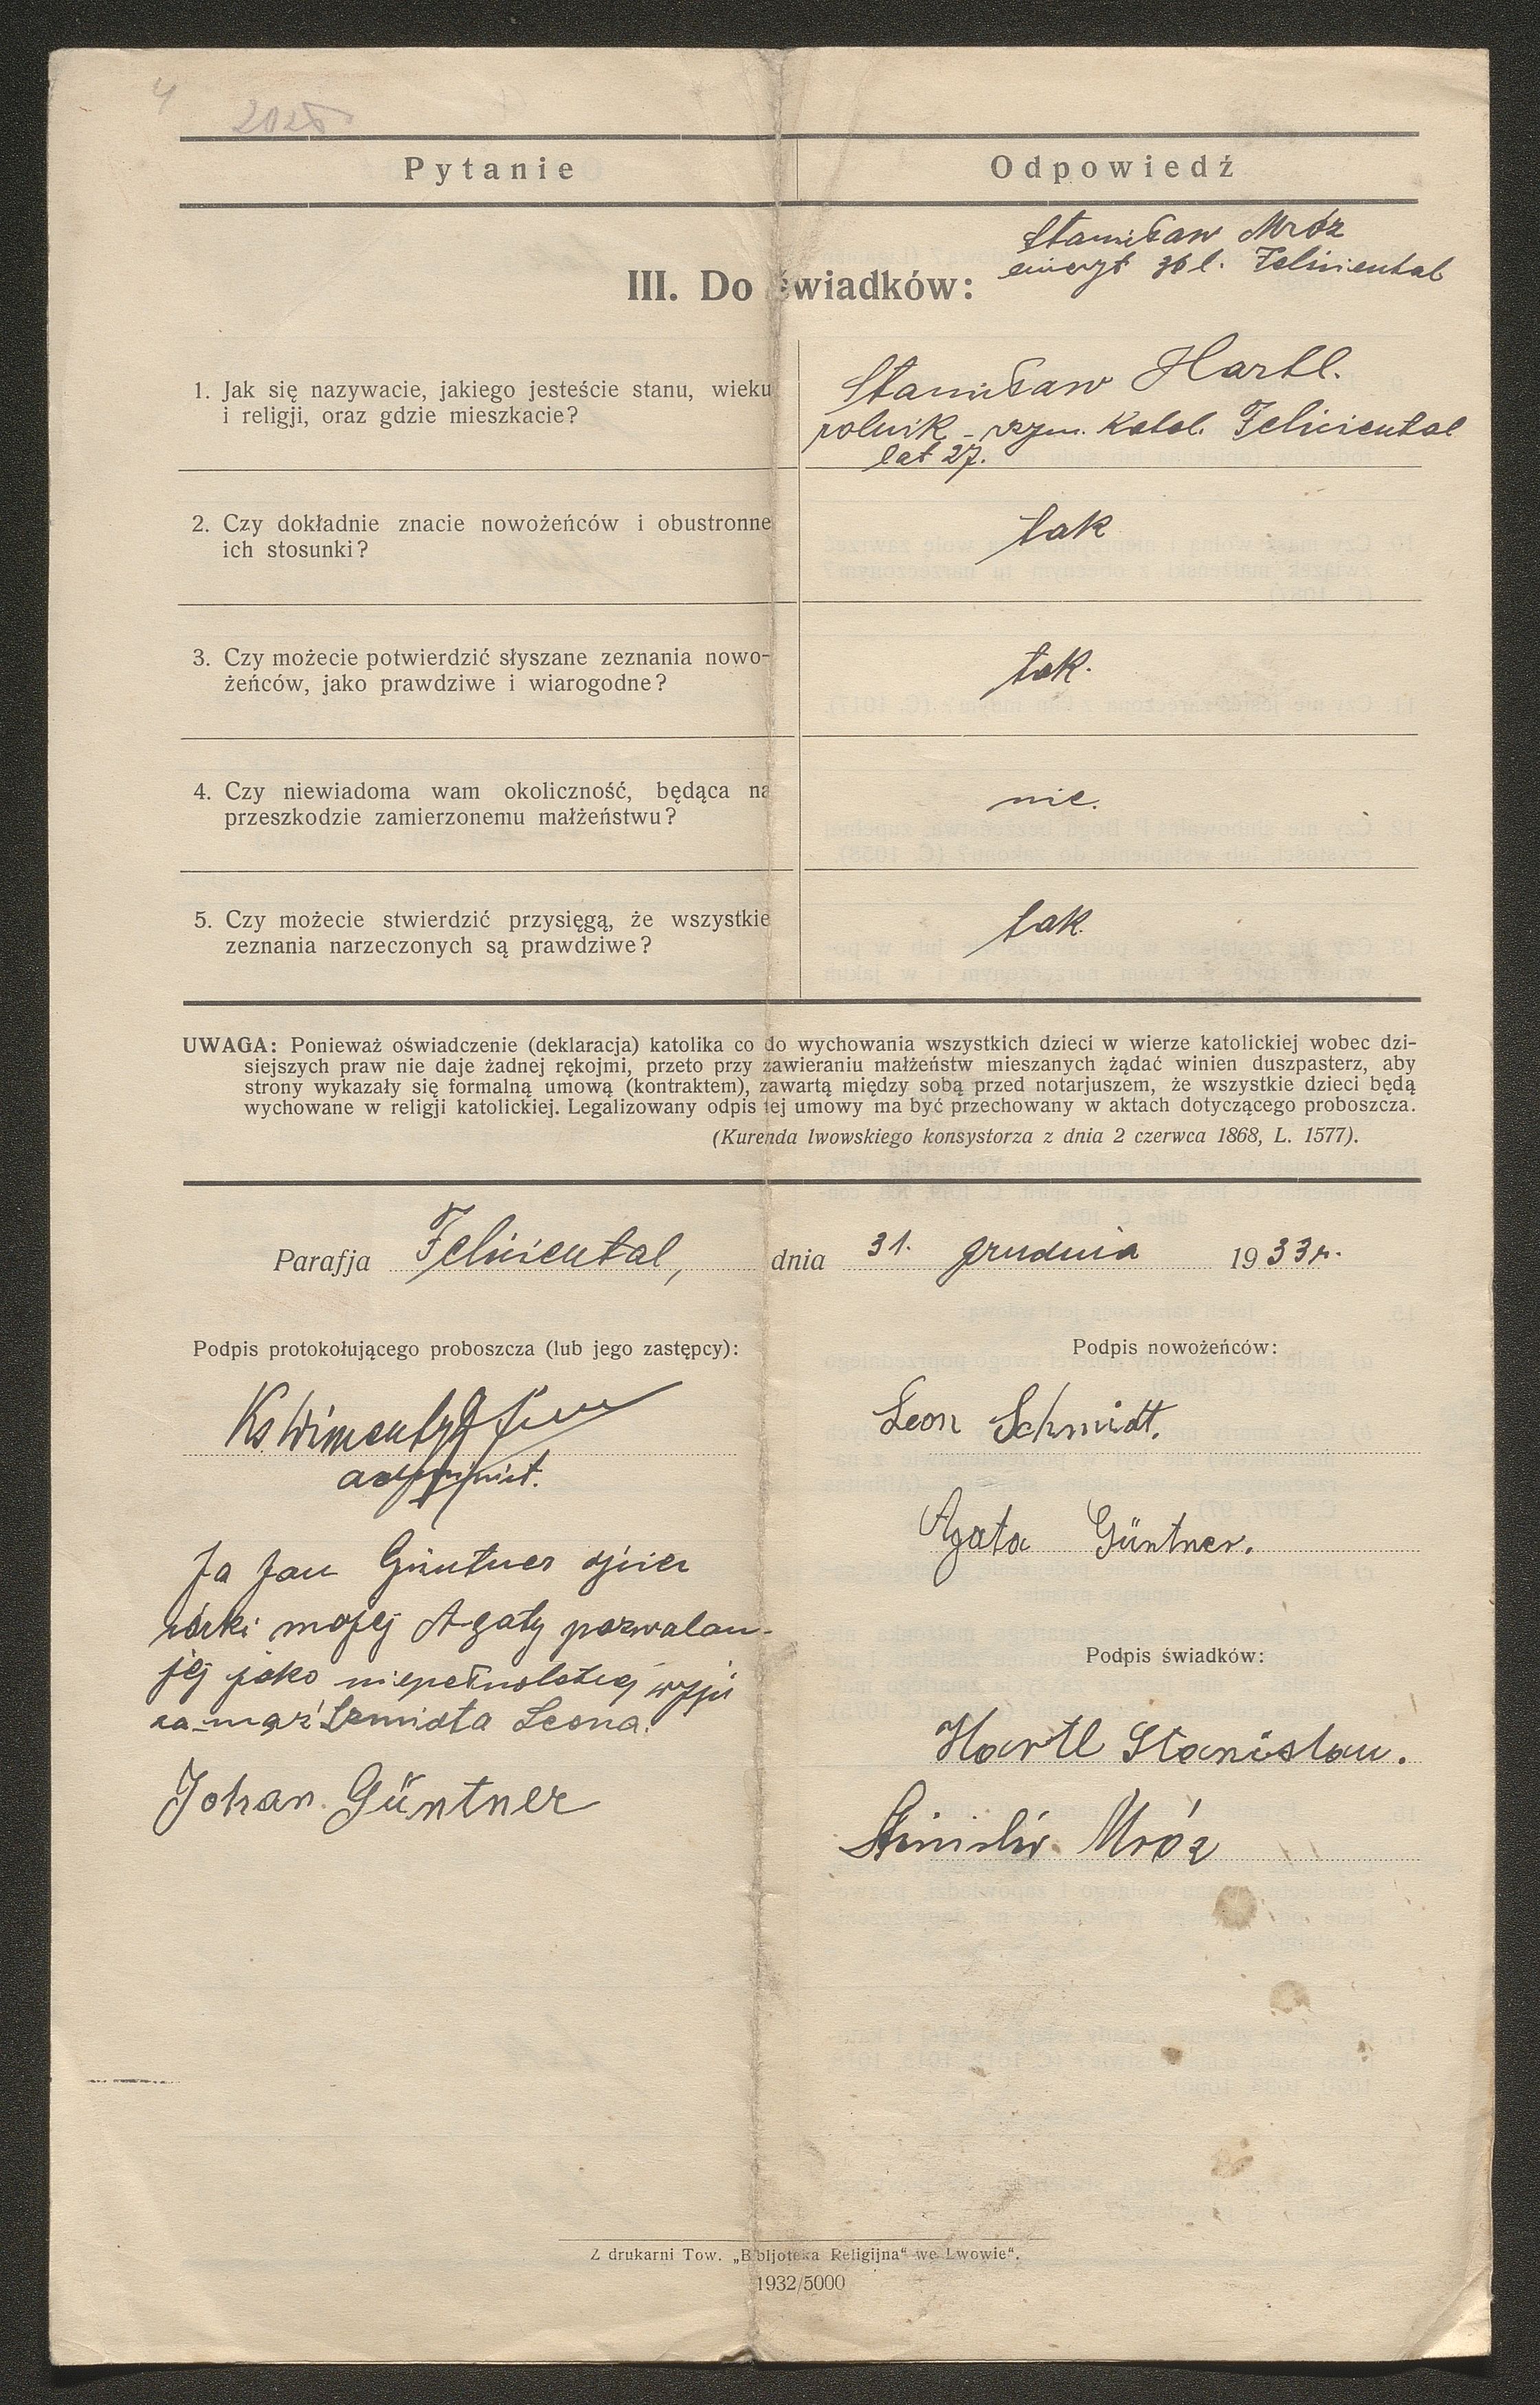 4
2025
Pytanie Odpowiedź
Stanisław Mróz
emeryt 36 l. Feliciental
III. Do świadków:
1. Jak się nazywacie, jakiego jesteście stanu, wieku
i religji, oraz gdzie mieszkacie?
Stanisław Hartl.
rolnik - rzym. katol. Feliciental
lat 27.
2. Czy dokładnie znacie nowożeńców i obustronne
ich stosunki?
tak
3. Czy możecie potwierdzić słyszane zeznania nowo-
żeńców, jako prawdziwe i wiarogodne?
tak.
4. Czy niewiadoma wam okoliczność, będąca na
przeszkodzie zamierzonemu małżeństwu?
nie.
5. Czy możecie stwierdzić przysięgą, że wszystkie
zeznania narzeczonych są prawdziwe?
tak.
UWAGA: Ponieważ oświadczenie (deklaracja) katolika co do wychowania wszystkich dzieci w wierze katolickiej wobec dzi-
siejszych praw nie daje żadnej rękojmi, przeto przy zawieraniu małżeństw mieszanych żądać winien duszpasterz, aby
strony wykazały się formalną umową (kontraktem), zawartą między sobą przed notarjuszem, że wszystkie dzieci będą
wychowane w religji katolickiej. Legalizowany odpis tej umowy ma być przechowany w aktach dotyczącego proboszcza.
(Kurenda lwowskiego konsystorza z dnia 2 czerwca 1868, L. 1577).
Parafja Feliciental, dnia 31. grudnia 1933 r.
Podpis protokołującego proboszcza (lub jego zastępcy):
Ks Wincenty
administ.
Ja Jan Güntner ojciec
córki mojej Agaty pozwalam
jej jako niepełnoletniej wyjść
za-mąż Szmidta Leona.
Johan Güntner
Podpis nowożeńców:
Leon Schmidt.
Agata Güntner.
Podpis świadków:
Hartl Stanislau.
Mróz
Z drukarni Tow. „Bibljoteka Religijna“ we Lwowie“.
1932/5000